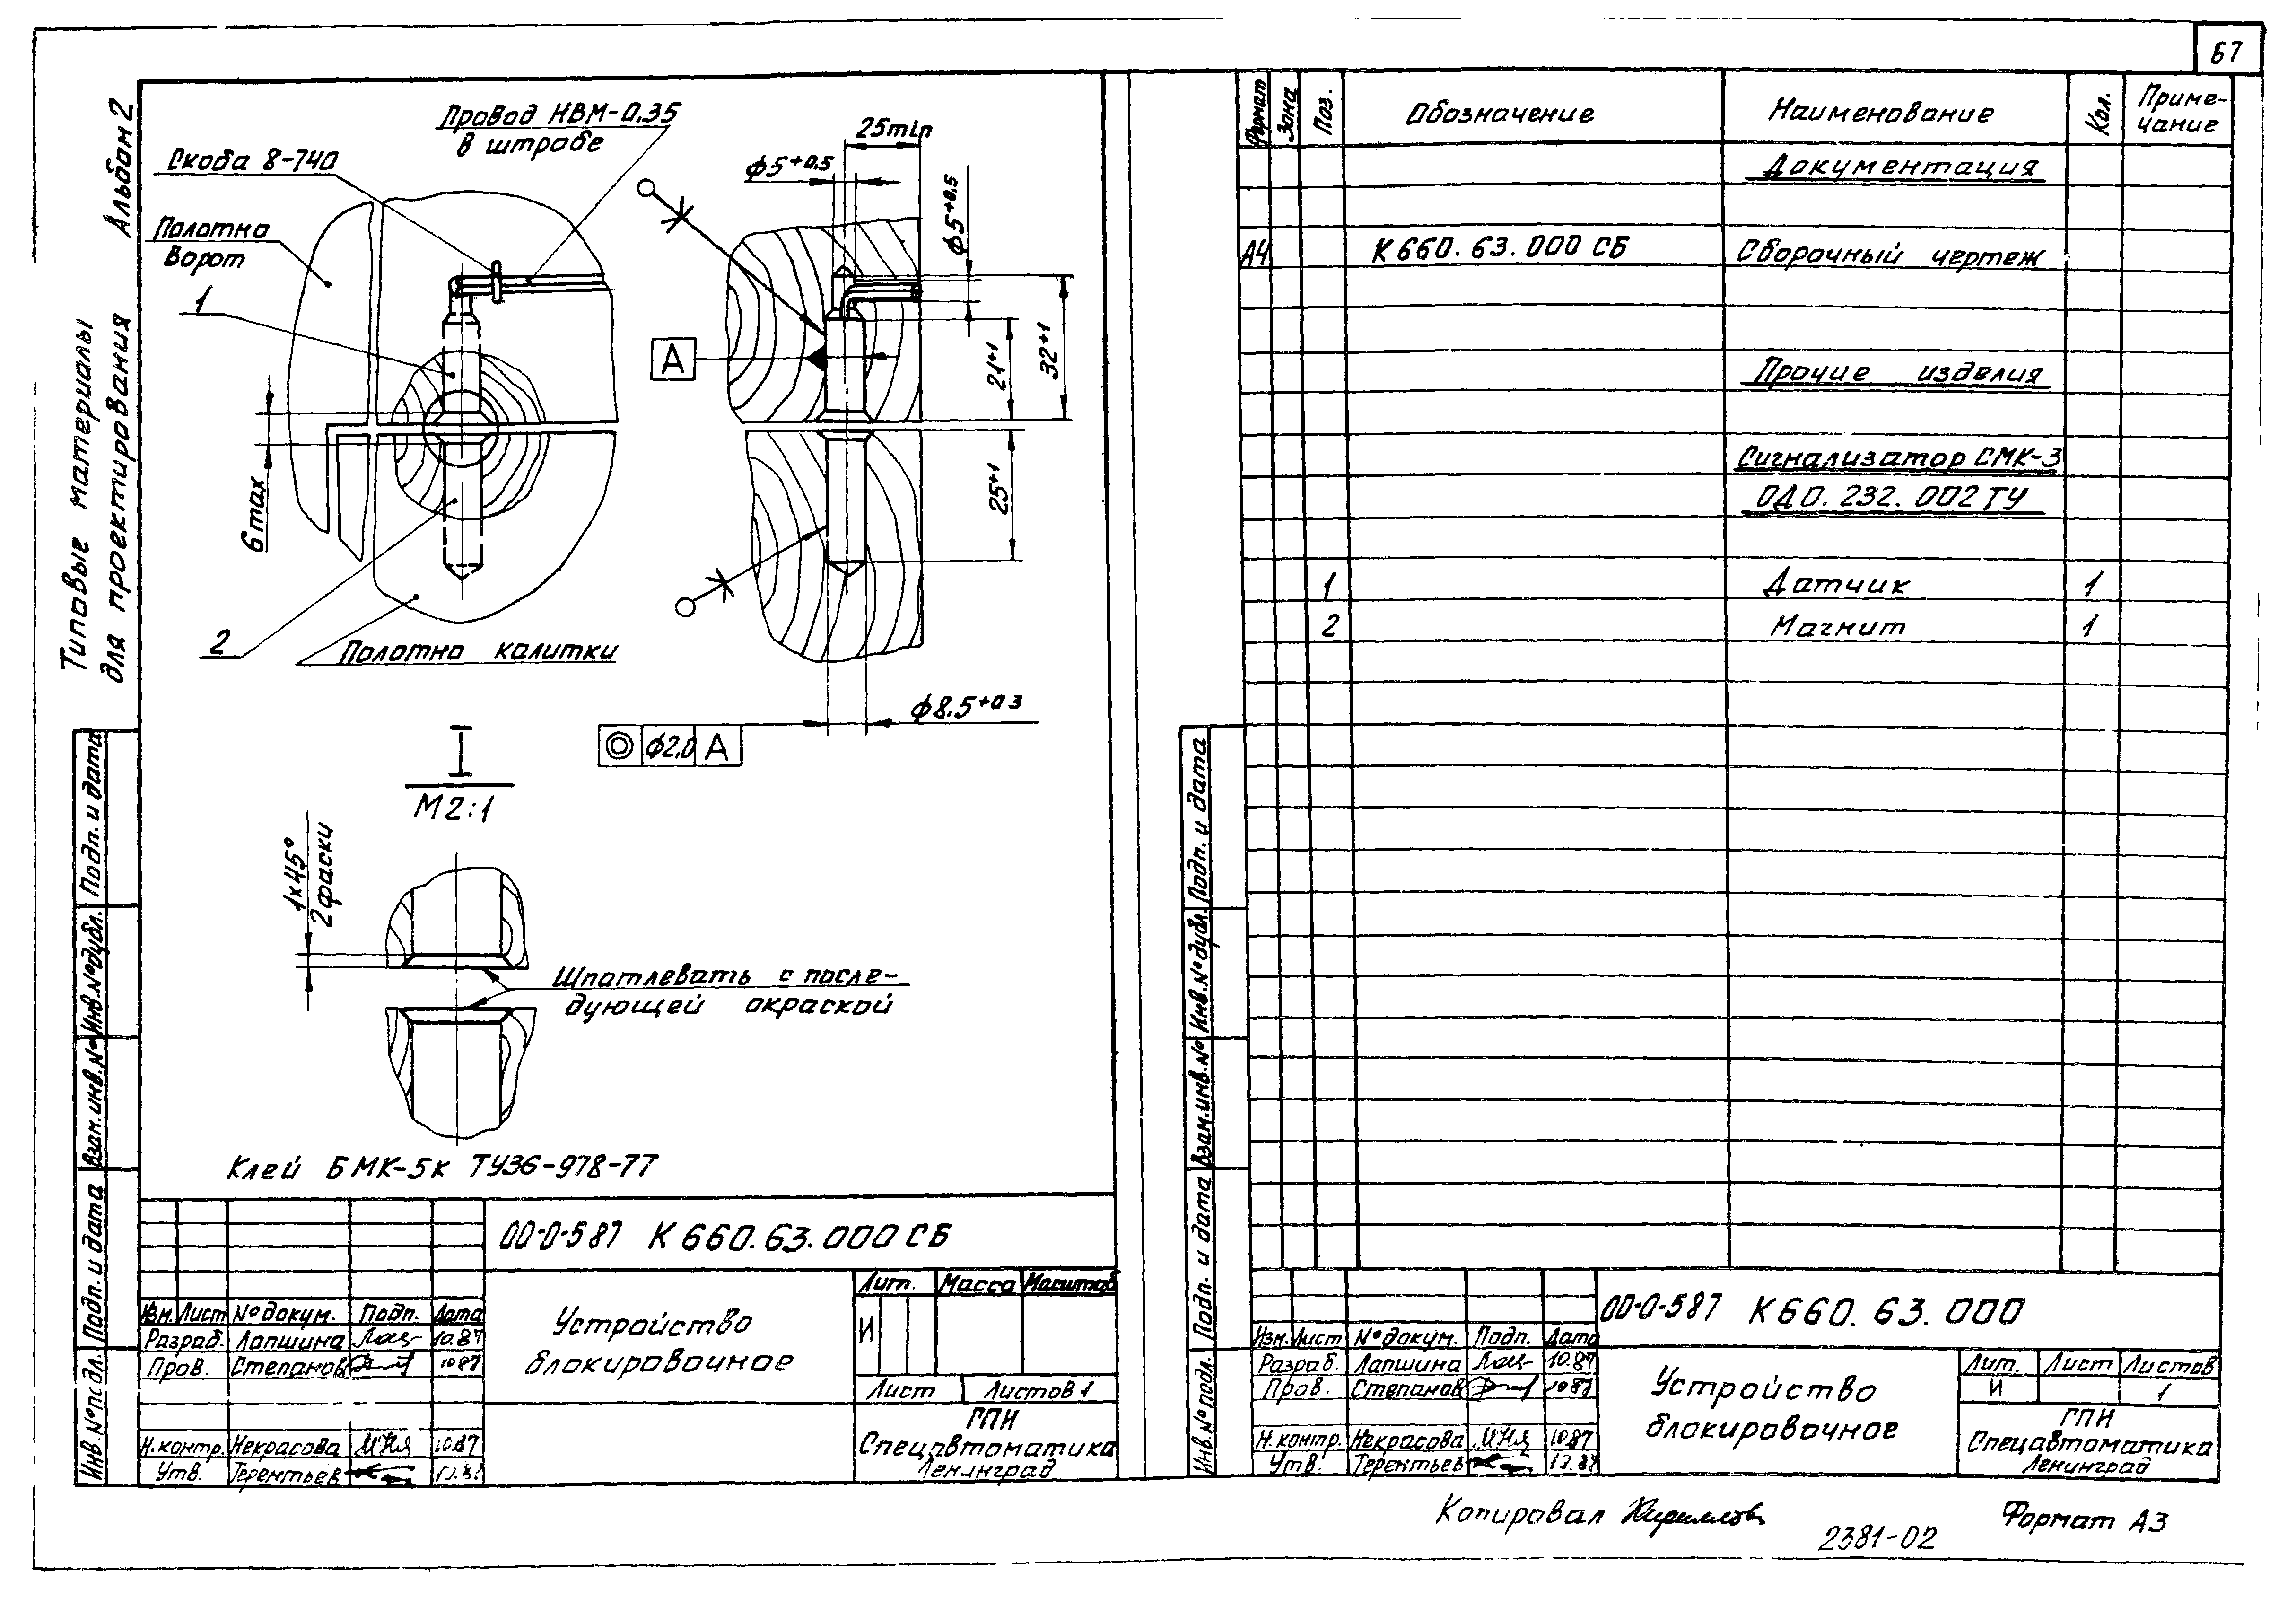 67
Типовые материалы
для проектирования Альбом 2
Провод НВМ-0,35
в штробе
Скоба 8-740
Полотно
ворот
1
2
6 max
Полотно калитки
25 min
ϕ5+0,5
ϕ5+0,5
А
21+1
32+1
25+1
ϕ8,5+0,3
◎ ϕ2,0 А
I
М 2:1
1×45°
2 фаски
Шпатлевать с после-
дующей окраской
Клей БМК-5к ТУ36-978-77
00-0-587 К 660.63.000 СБ
Лит. Масса Масштаб
Изм. Лист № докум. Подп. Дата
Разраб. Лапшина 10.87
Пров. Степанов 10 87
Н.контр. Некрасова 10.87
Утв. Терентьев
Устройство
блокировочное
И
Лист Листов 1
ГПИ
Спецавтоматика
Ленинград
Инв. № подл. Подп. и дата Взам. инв. № Инв. № дубл. Подп. и дата
Формат Зона Поз. Обозначение Наименование Кол. Приме-
чание
Документация
А4 К 660.63.000 СБ Сборочный чертеж
Прочие изделия
Сигнализатор СМК-3
ОДО.232.002 ТУ
1 Датчик 1
2 Магнит 1
00-0-587 К 660.63.000
Изм. Лист № докум. Подп. Дата
Разраб. Лапшина 10.87
Пров. Степанов 10 87
Н.контр. Некрасова 10 87
Утв. Терентьев 12.87
Устройство
блокировочное
Лит. Лист Листов
И 1
ГПИ
Спецавтоматика
Ленинград
Инв. № подл. Подп. и дата Взам. инв. № Инв. № дубл. Подп. и дата
Копировал
2381-02
Формат А3